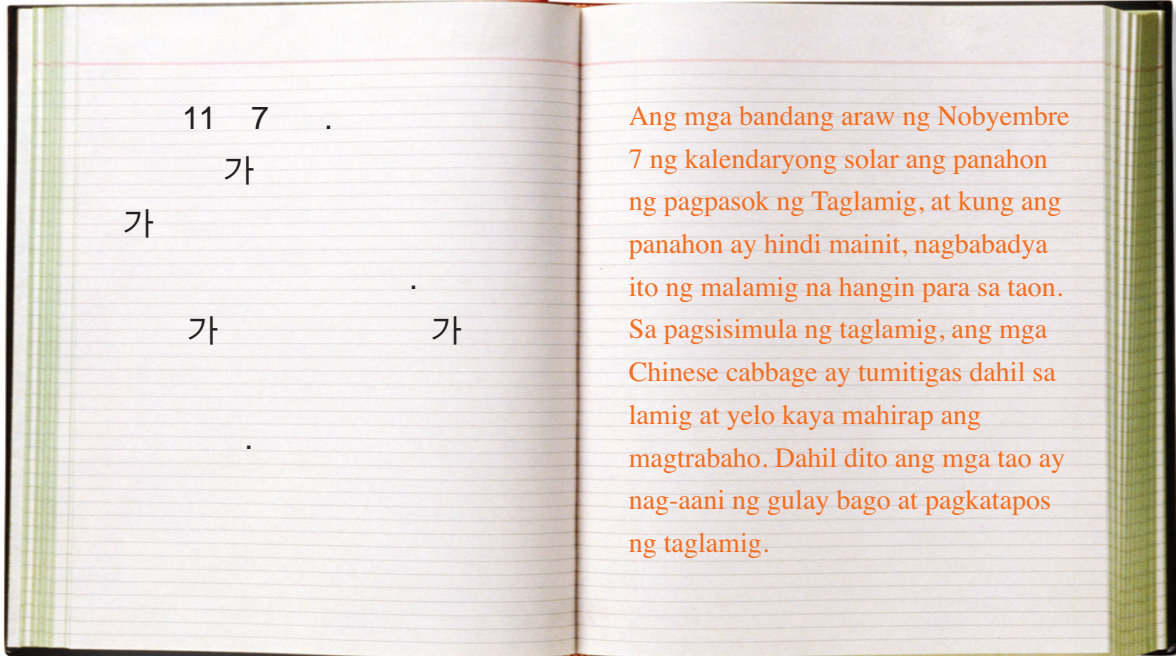 11 7 .
가
가
.
가 가
.
Ang mga bandang araw ng Nobyembre
7 ng kalendaryong solar ang panahon
ng pagpasok ng Taglamig, at kung ang
panahon ay hindi mainit, nagbabadya
ito ng malamig na hangin para sa taon.
Sa pagsisimula ng taglamig, ang mga
Chinese cabbage ay tumitigas dahil sa
lamig at yelo kaya mahirap ang
magtrabaho. Dahil dito ang mga tao ay
nag-aani ng gulay bago at pagkatapos
ng taglamig.